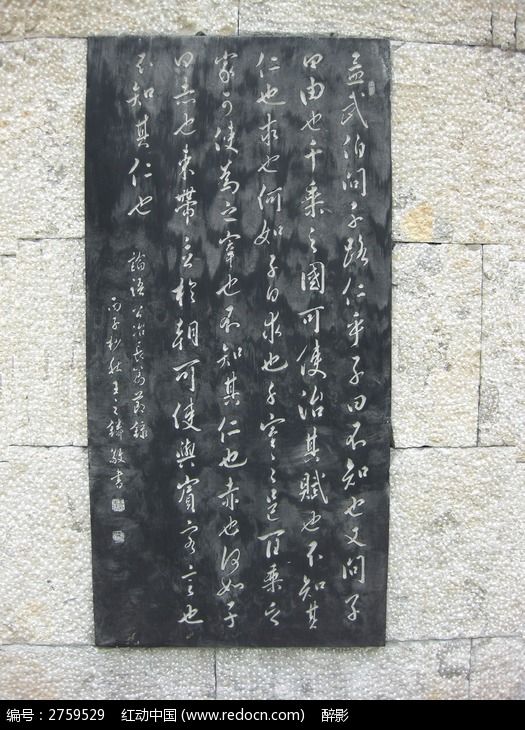 孟武伯问子路仁乎子曰不知也又问子
曰由也千乘之國可使治其賦也不知其
仁也求也何如子曰求也千室之邑百乘之
家可使為之宰也不知其仁也赤也何如子
曰赤也束帶立於朝可使與賓客言也
不知其仁也
論語公冶長篇節錄
丙子秒秋王之鏻敬書
编号：2759529 红动中国 (www.redocn.com) 醉影